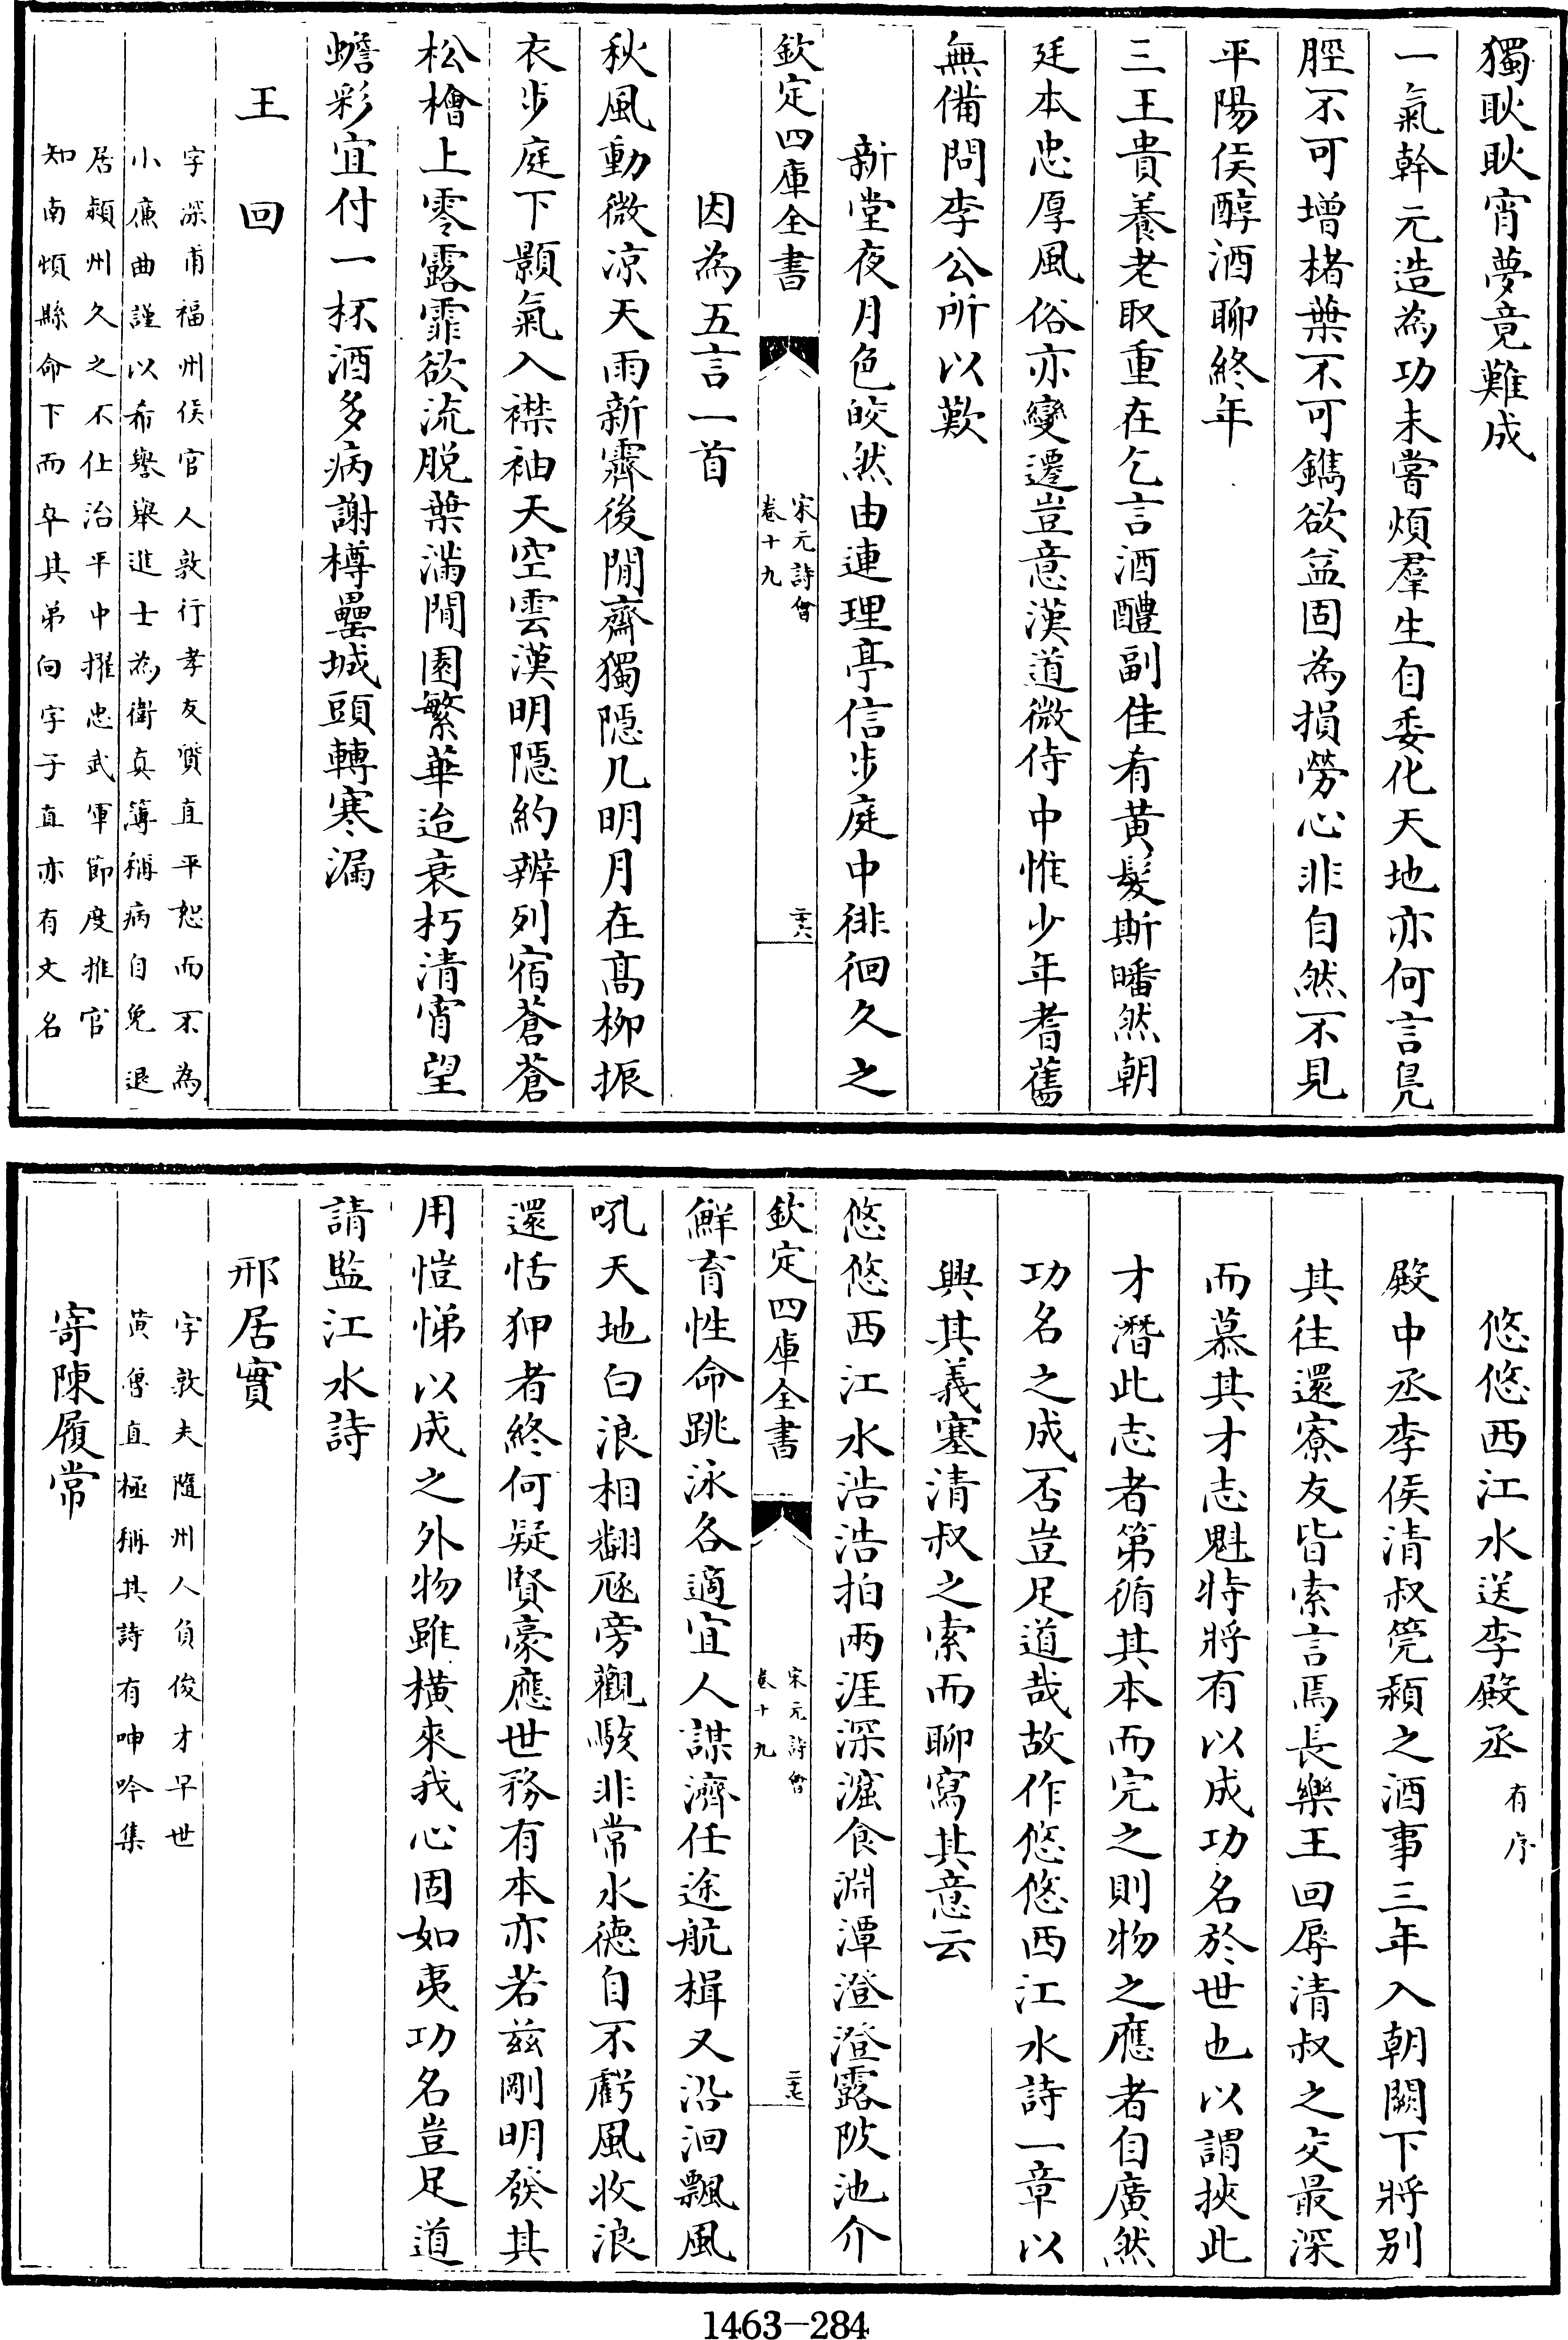 獨耿耿宵夢竟難成
一氣幹元造為功未嘗煩羣生自委化天地亦何言鳧
脛不可增楮葉不可鐫欲益固為損勞心非自然不見
平陽侯醇酒聊終年
三王貴養老取重在乞言酒醴副佳肴黃髮斯皤然朝
廷本忠厚風俗亦變遷豈意漢道微侍中惟少年耆舊
無備問李公所以歎
新堂夜月色皎然由連理亭信步庭中徘徊久之
欽定四庫全書
宋元詩會
卷十九
二十六
因為五言一首
秋風動微凉天雨新霽後閒齋獨隱几明月在髙柳振
衣步庭下顥氣入襟袖天空雲漢明隱約辨列宿蒼蒼
松檜上零露霏欲流脫葉滿閒園繁華迨衰朽清宵望
蟾彩宜付一杯酒多病謝樽罍城頭轉寒漏
王回
字深甫福州侯官人敦行孝友質直平恕而不為
小廉曲謹以希譽舉進士為衛真簿稱病自免退
居潁州久之不仕治平中擢忠武軍節度推官
知南頓縣命下而卒其弟向字子直亦有文名
悠悠西江水送李殿丞
有序
殿中丞李侯清叔筦潁之酒事三年入朝闕下將别
其往還寮友皆索言焉長樂王回辱清叔之交最深
而慕其才志魁特將有以成功名於世也以謂挾此
才潛此志者第循其本而完之則物之應者自廣然
功名之成否豈足道哉故作悠悠西江水詩一章以
興其義塞清叔之索而聊寫其意云
悠悠西江水浩浩拍兩涯深漘食淵潭澄澄露陂池介
欽定四庫全書
宋元詩會
卷十九
二十七
鮮育性命跳泳各適宜人謀濟任途航楫又沿洄飄風
吼天地白浪相翻豗旁觀駭非常水德自不虧風收浪
還恬狎者終何疑賢豪應世務有本亦若兹剛明發其
用愷悌以成之外物雖横來我心固如夷功名豈足道
請監江水詩
邢居實
字敦夫隨州人負俊才早世
黄魯直極稱其詩有呻吟集
寄陳履常
1463-284